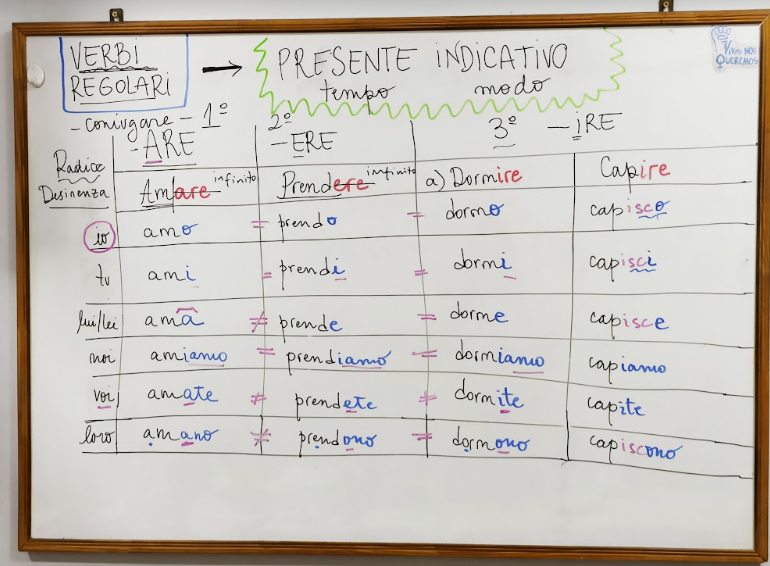 VERBI REGOLARI → PRESENTE INDICATIVO
tempo modo
Vivas nos Queremos
- coniugare - 1º 2º 3º
-ARE -ERE -iRE
Radice
Desinenza
Amare infinito Prendere infinito a) Dormire Capire
io amo = prendo = dormo capisco
tu ami = prendi = dormi capisci
lui/lei ama ≠ prende = dorme capisce
noi amiamo = prendiamo = dormiamo capiamo
voi amate ≠ prendete ≠ dormite capite
loro amano ≠ prendono = dormono capiscono